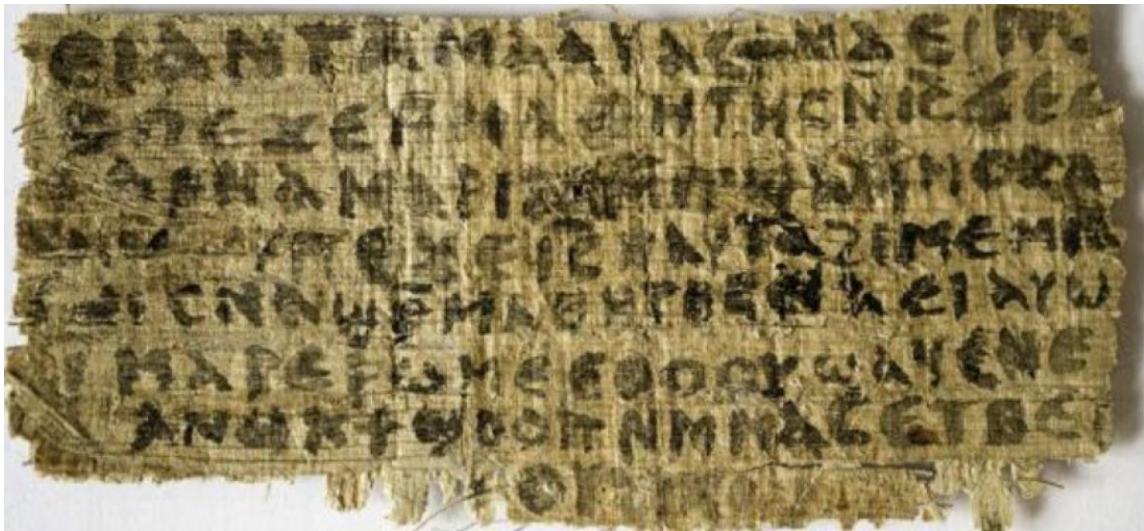 ⲉⲓⲁⲛⲧⲁⲙⲁⲁⲩⲁⲥϯⲛⲁⲉⲓⲡ
ϫⲉⲙⲙⲁⲑⲏⲧⲏⲥⲛⲓ̅ⲥ̅ϫⲉⲥ
ⲁⲣⲛⲁⲙⲁⲣⲓⲁⲙⲙⲡϣⲁⲙⲙⲟⲥⲁ
ⲡⲉϫⲉⲓ̅ⲥ̅ⲛⲁⲩⲧⲁϩⲓⲙⲉⲙⲛ
ⲥⲛⲁϣⲣ̅ⲙⲁⲑⲏⲧⲏⲥⲛⲁⲉⲓⲁⲩⲱ
ⲙⲁⲣⲉⲣⲱⲙⲉⲉⲑⲟⲟⲩϣⲁϥⲉⲛⲉ
ⲁⲛⲟⲕϯϣⲟⲟⲡⲛⲙⲙⲁⲥⲉⲧⲃⲉ